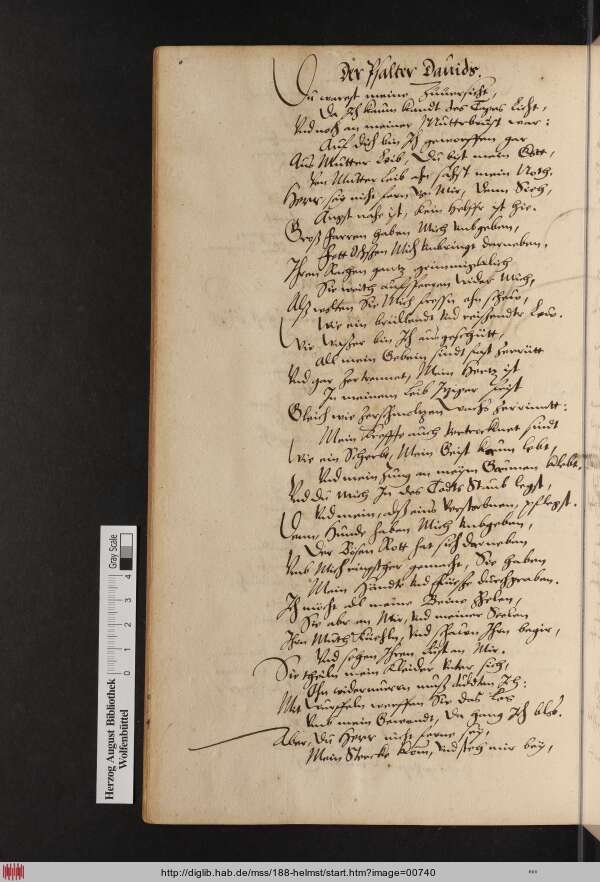 Der Psalter Dauids.
Du warest meine Zuuersicht,
Da Ich kaum kandt des Tages Licht,
Vnd noch an meiner Mutterbrust war:
Auf dich bin Ich geworffen gar
Aus Mutter Leib, Du bist mein Gott,
Von Mutter Leib ahn sahst mein Noth.
Herr sey nicht fern von Mir, denn Sieh,
Angst nahe ist, kein Helffer ist hie.
Gross farren haben Mich vmbgeben,
Fett Ochssen Mich vmbringt darneben,
Ihren Rachen gantz grimmigklich
Sie weitth auffsperren wider Mich,
Alss wolten Sie Mich fressen ahn scheu,
Wie ein brüllendt vnd reissendter Lew.
Wie Wasser bin Ich aussgeschütt,
All mein Gebein sindt fast Zerrütt
Vnd gar Zertrennet, Mein Hertz ist
In meinem Leib
Gleich wie Zerschmoltzen Wachs Zerrinnett:
Mein Kreffte auch Vertrocknet sindt
Wie ein Scherbe, Mein Geist kaum lebt,
Vnd mein Zung an meym Gaumen klebt.
Vnd du mich In des Todts Staub legst,
Vnd mein, alss eins Verstorbnen, pflegst.
Denn Hunde haben Mich vmbgeben,
Der Bösen Rott hat sich darneben
Vmb Mich ringsther gemacht, Sie haben
Mein Hände vnd Füesse durchgraben.
Ich möcht all meine Beine Zelen,
Sie aber an Mir, vnd meiner Seelen
Ihrn Muth kuehln, vnd schaun Ihrn begir,
Vnd sehen Ihren Lust an Mir.
Sie theiln mein Kleider Vnter sich,
muss duldten Ich:
Mit Wurffeln werffen Sie das Los
Vmb mein Gewandt, Da hang Ich bloss.
Aber, Du Herr nicht ferne sey,
Mein Stercke kom, vnd steh mir bey,
Herzog August Bibliothek
Wolfenbüttel
0 1 2 3 4
Gray Scale
http://diglib.hab.de/mss/188-helmst/start.htm?image=00740